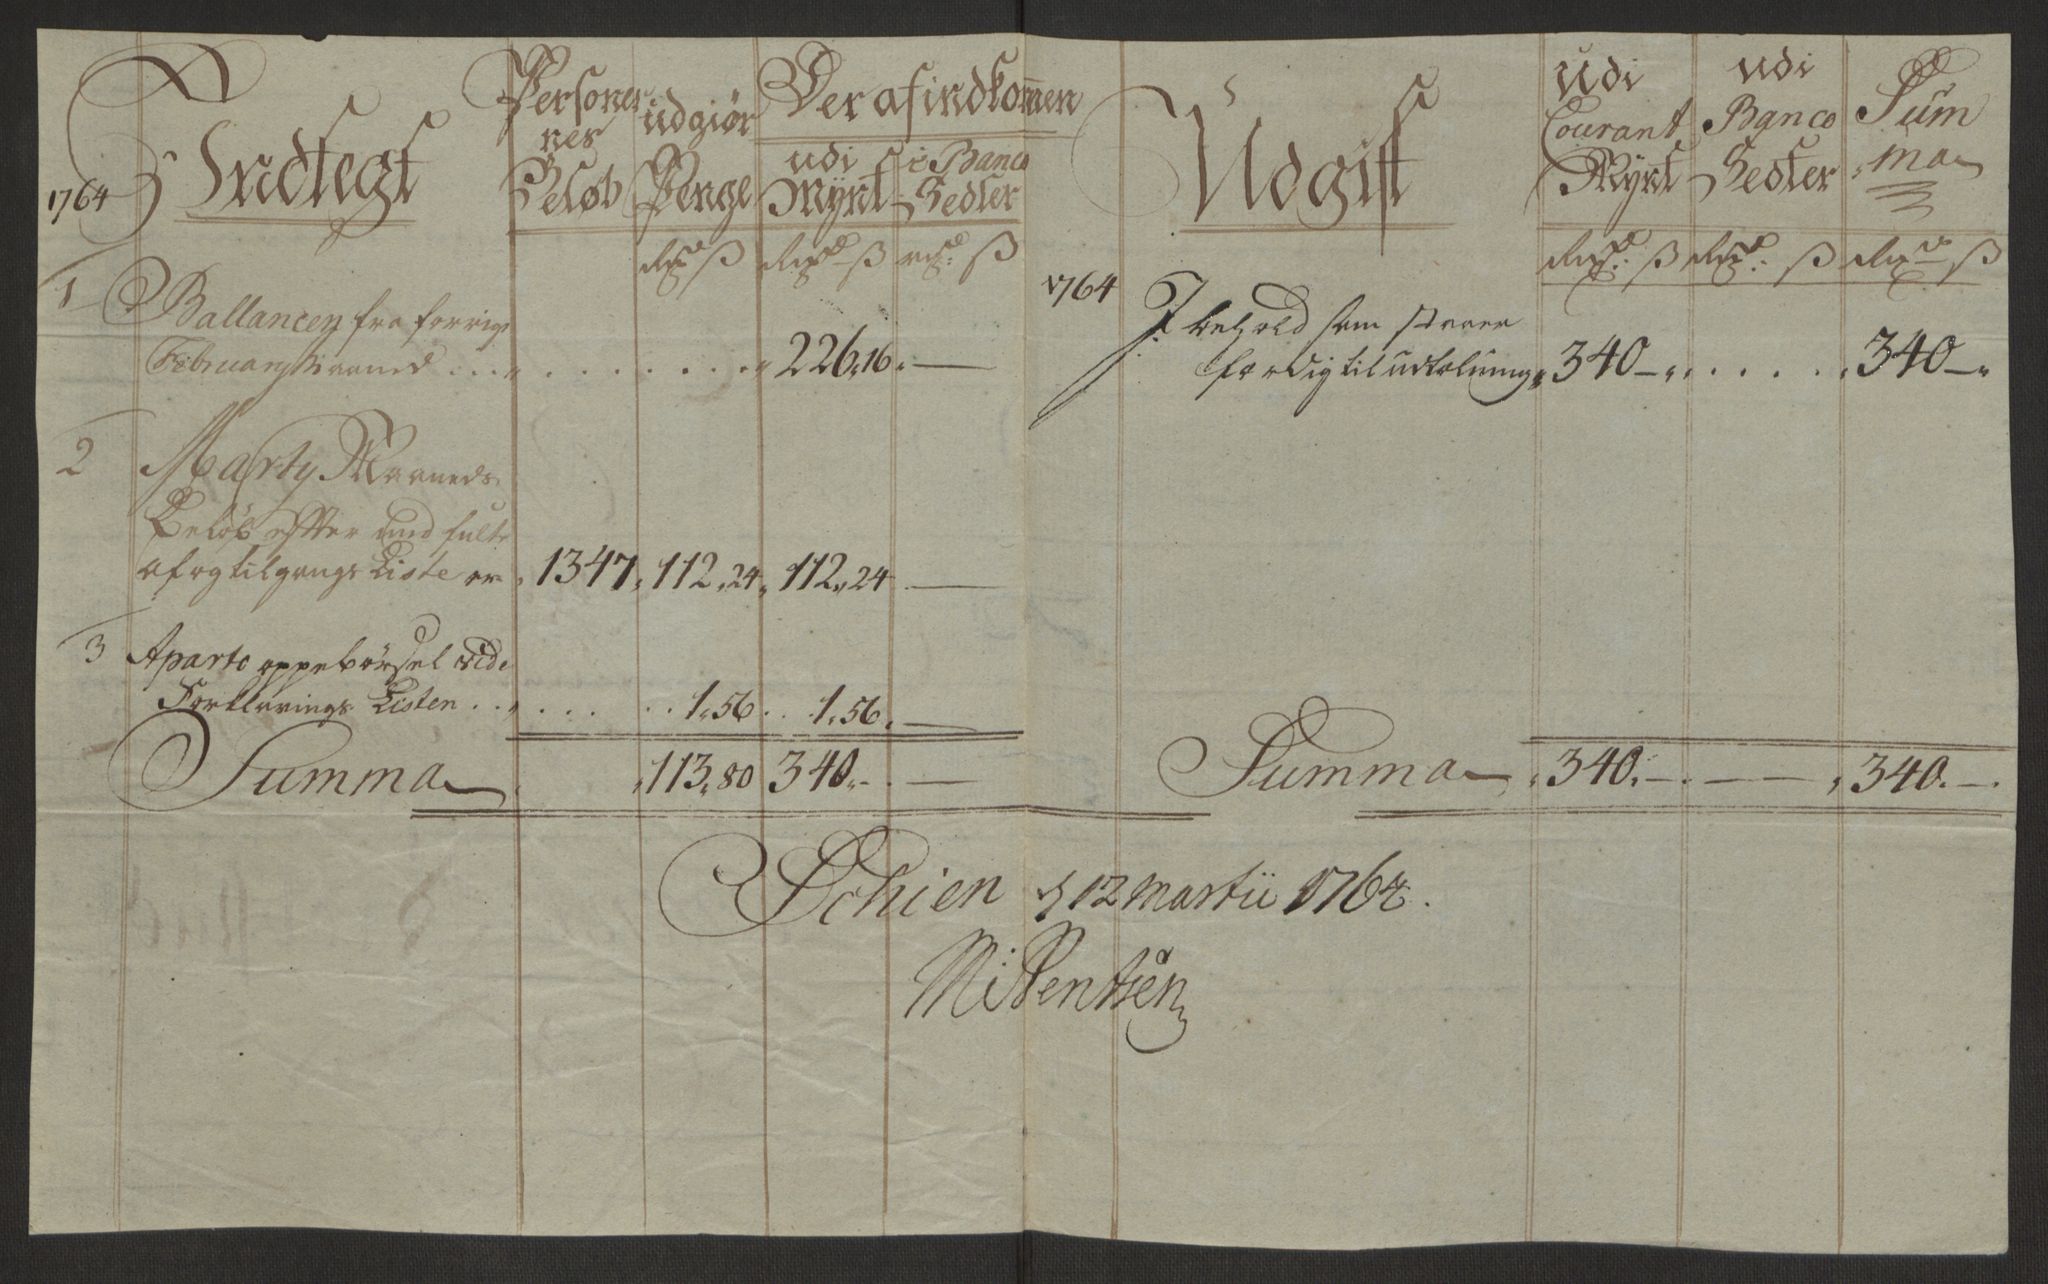 1764
Indtegt
Personer
nes
Beløb
udgiør
Penge
Der af indkom̄en
udi
Mÿnt
i Banco
Sedler
ß
ß
ß
1
Ballancen fra forrige
February Maaned . . . . . . . . . . . 226,16. —
2
Marty Maaneds
Beløb efter und fulte
af og tilgangs Liste er 1347, 112,24, 112,24 —
3
Aparte oppebørsel vide
Forklarings Listen . . . . . . . 1,56 . . 1,56. —
Summa 113,80 340.- . —
Udgift
udi
Courant
Mÿnt
udi
Banco
Sedler
Sum
ma
ß
ß
ß
1764
I behold som staaer
færdig til udtælning 340 — . . . . . . 340 —
Summa 340. — . — 340. — .
Schien d 12 Martii 1764.